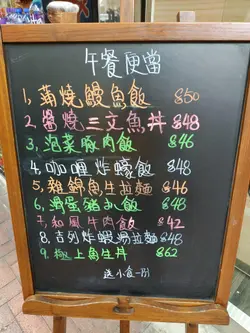 午餐便當
1, 蒲燒鰻魚飯 $50
2, 醬燒三文魚丼 $48
3, 泡菜豚肉飯 $46
4, 咖喱炸蠔飯 $48
5, 雜錦魚生拉麵 $46
6, 滑蛋豬扒飯 $48
7, 和風牛肉飯 $42
8, 吉列炸蝦湯拉麵 $48
9, 極上魚生丼 $62
送小食一引